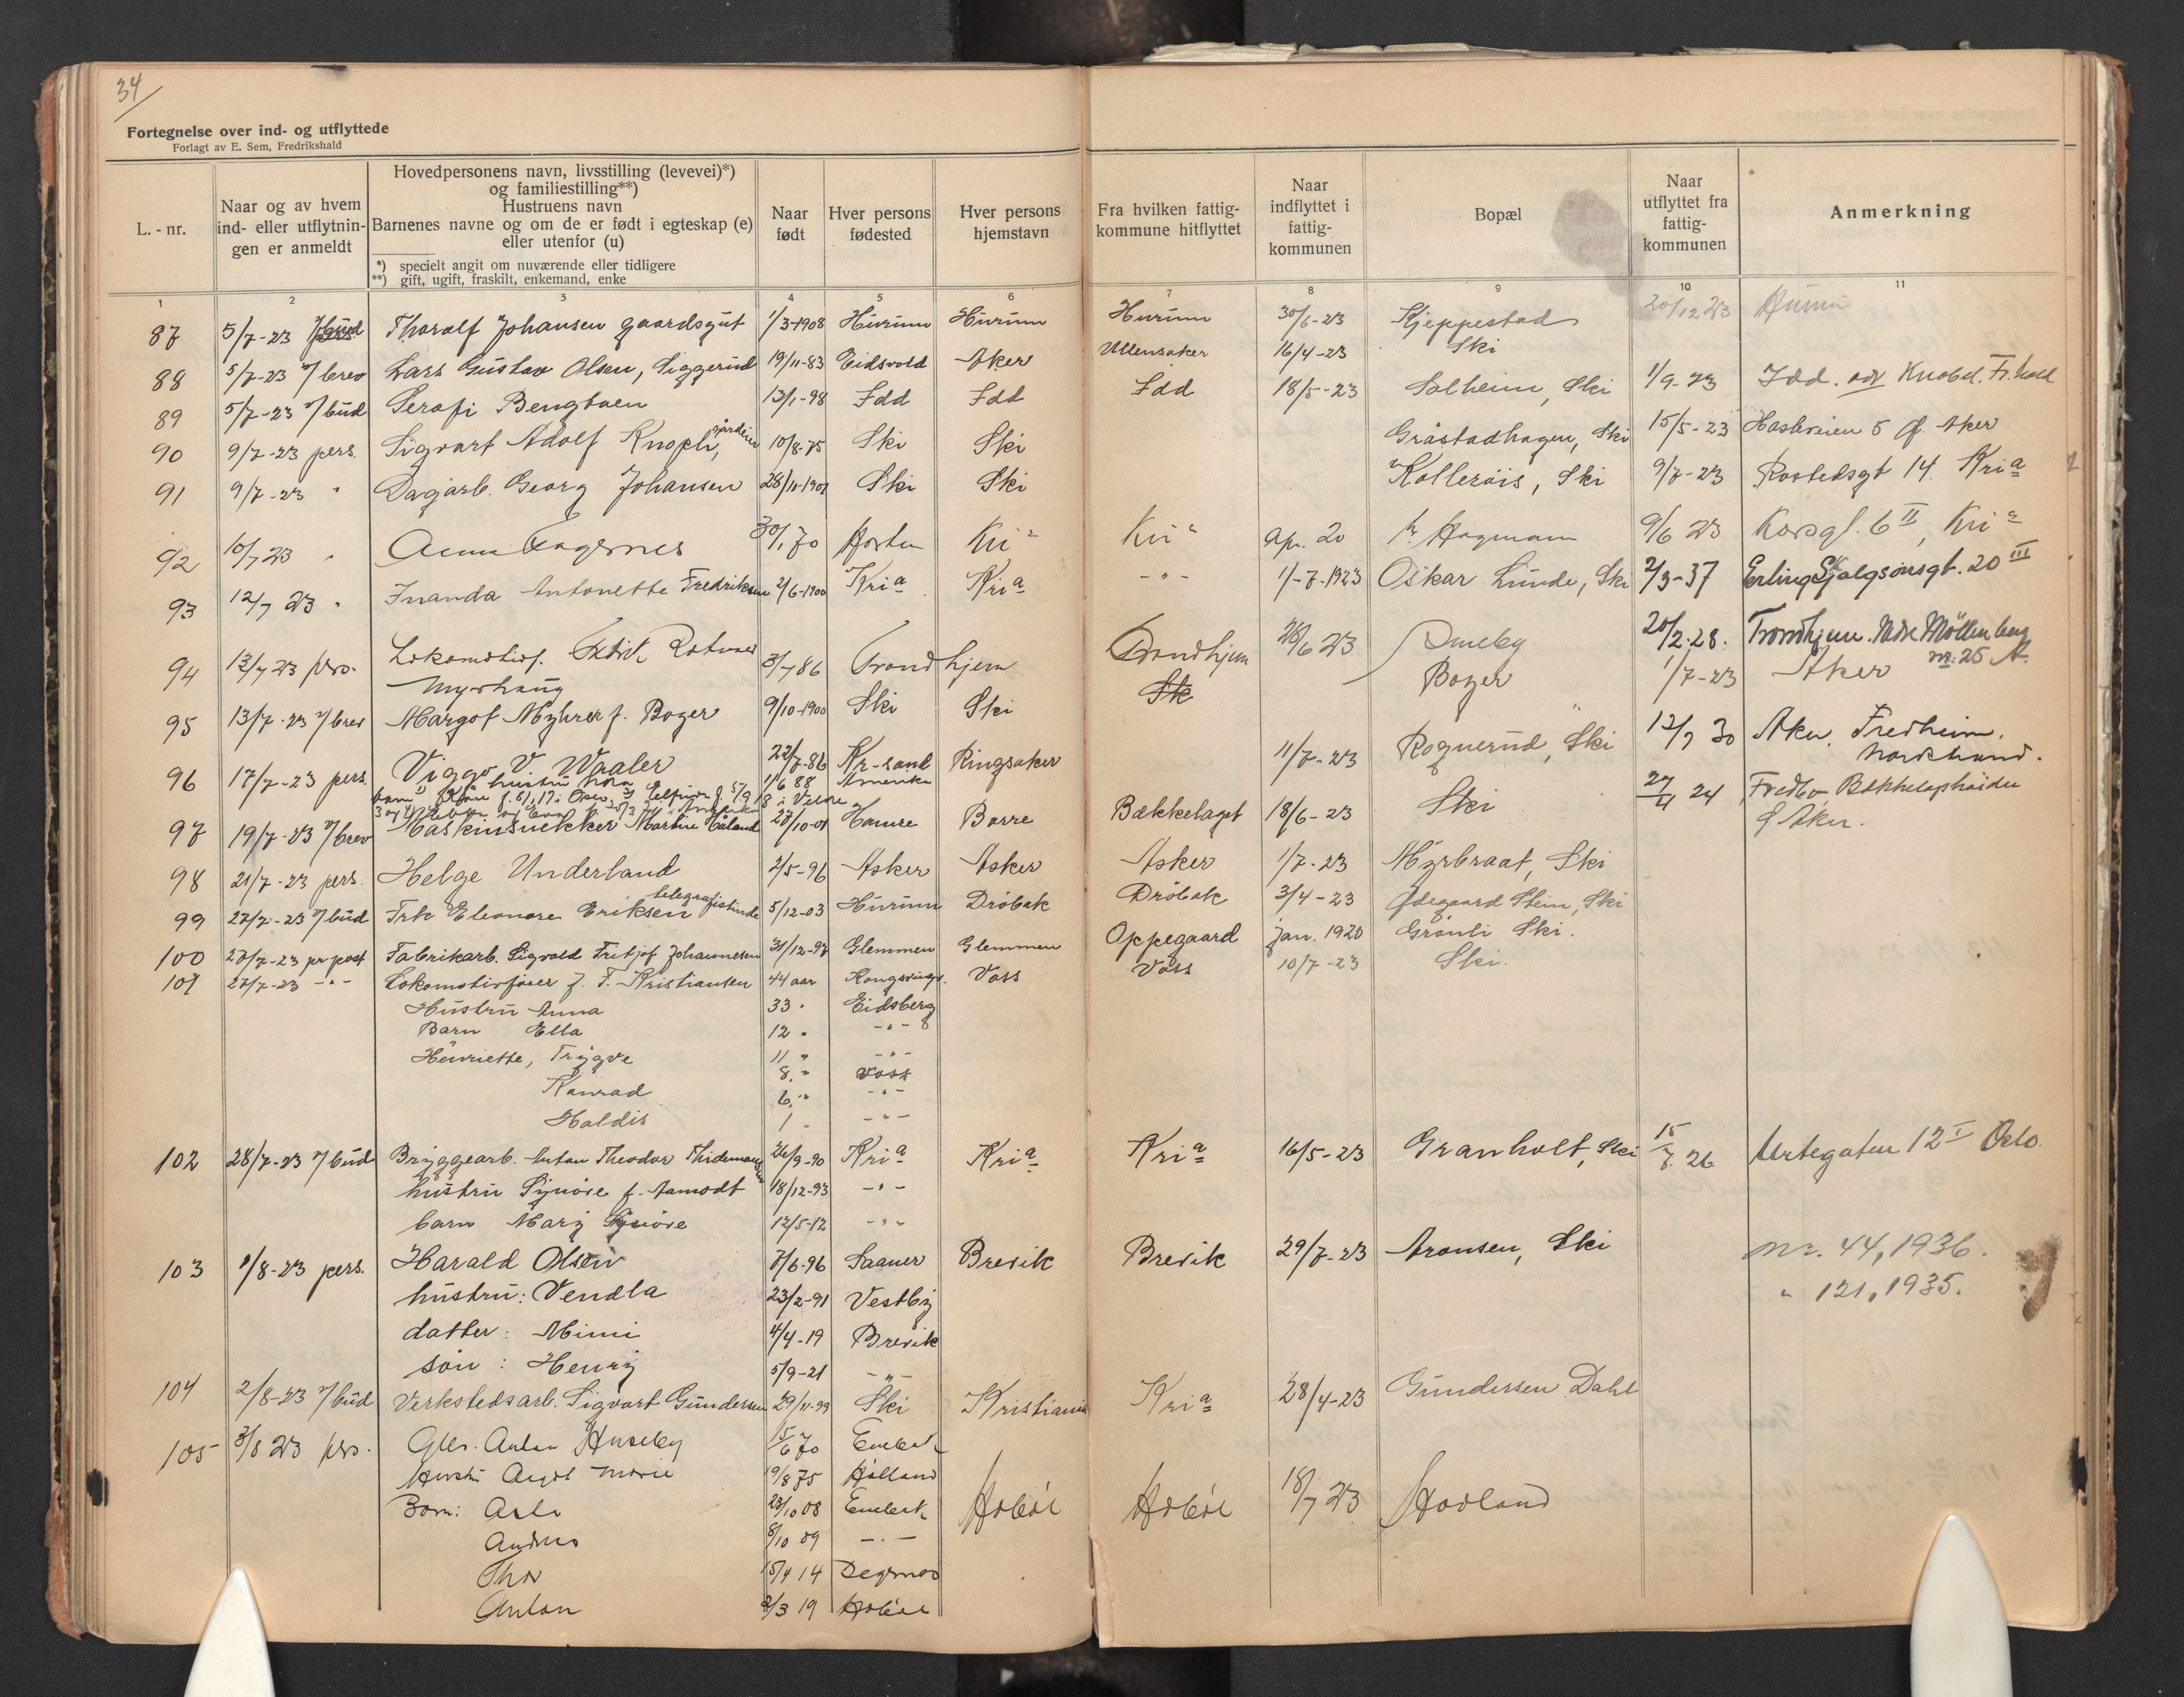 34
Fortegnelse over ind- og utflyttede
Forlagt av E. Sem, Fredrikshald
L.-nr.
Naar og av hvem ind- eller utflytnin- gen er anmeldt
Hovedpersonens navn, livsstilling (levevei)*)
og familiestilling**)
Hustruens navn
Barnenes navne og om de er født i egteskap (e)
eller utenfor (u)
*) specielt angit om nuværende eller tidligere
**) gift, ugift, fraskilt, enkemand, enke
Naar født
Hver persons fødested
Hver persons hjemstavn
Fra hvilken fattig- kommune hitflyttet
Naar indflyttet i fattig- kommunen
Bopæl
Naar utflyttet fra fattig- kommunen
Anmerkning
1 2 3 4 5 6 7 8 9 10 11
87 5/7-23 Thoralf Johansen gaardsgut 1/3-1908 Hurum Hurum Hurum 30/6-23 Kjeppestad 20/12 23 Hurum
88 5/7-23 %brev Lars Gustav Olsen, Siggerud 19/11-83 Eidsvold Aker Ullensaker 16/4-23 Ski
89 5/7-23 %bud Serafi Bengtsen 13/1-98 Idd Idd Idd 18/5-23 Solheim, Ski 1/9-23 Idd. adr Knobel. Fr.hald
90 9/7-23 pers. Sigvart Adolf Knopli, 10/8-75 Ski Ski Gråstadhagen, Ski 15/5-23 Hasleveien 5 Ø. Aker
91 9/7-23 " Dagarb. Georg Johansen 28/11-1901 Ski Ski Kolleråis, Ski 9/7-23 Rostedsgt 14. Kria
92 10/7 23 " Anna Fagernes 30/1 70 Horten Kria Kria Apr. 20 Hagmann 9/6 23 Korsgt. 6 II, Kria
93 12/7 23 " Inanda Antonette Fredriksen 2/6-1900 Kria Kria -"- 1/-7-1923 Oskar Lunde, Ski 2/3-37 Erling Skjalgsønsgt. 20 III
94 13/7 23 pers. Lokomotivf. Fredrik Rotvold 3/7 86 Trondhjem Trondhjem 28/6 23 Smeby 20/2-28. Trondhjem. Ndre Möllenberg
Myrhaug nr: 25 A.
95 13/7-23 %brev Margot Myhrer f. Boger 9/10-1900 Ski Ski Sk Boger 1/7-23 Aker
96 17/7-23 pers. Viggo V. Waaler 22/7-86 Kr-sand Ringsaker 11/7-23 Rognerud, Ski 12/9 30 Aker, Fredheim,
hustru Nora 11/6 88 Amerika Nordstrand.
97 19/7-23 %brev Maskinsnekker Martin Håland 27/10-01 Hamre Borre Bækkelaget 18/6-23 Ski 27/4 24 Fredbo Bækkelagshøiden
Ø Aker.
98 21/7-23 pers. Helge Underland 2/5-96 Asker Asker Asker 1/7-23 Myrbraat, Ski
99 27/7-23 %bud Frk Eleonore Eriksen telegrafistinde 5/12-03 Hurum Dröbak Dröbak 3/4-23 Ødegaard Stein, Ski
100 27/7-23 pr post Fabrikarb. Sigvald Fritjof Johannesen 31/12-97 Glemmen Glemmen Oppegaard Jan. 1920 Grønli Ski.
101 27/7-23 -"- Lokomotivfører J. F. Kristiansen 44 aar Kongsvinger. Voss Voss 10/7-23 Ski.
Hustru Anna 33 " Eidsberg
Barn Ella 12 " -"-
Henriette, Trygve 11 " -"-
8, " Voss
Konrad 6, " -"-
Haldis 1 " -"-
102 28/7-23 %bud Bryggearb. Anton Theodor Thidemansen 26/9-90 Kria Kria Kria 16/5-23 Granholt, Ski 15/7. 26 Urtegaten 12 I Oslo.
hustru Synöve f. Aamodt 18/12-93 -"-
barn Mary Synöve 12/5-12 -"-
103 1/8-23 pers. Harald Olsen 7/6-96 Saaner Brevik Brevik 29/7-23 Aronsen, Ski nr. 44, 1936.
hustru: Vendla 23/2-91 Vestby " 121, 1935.
datter: Mimi 4/4-19 Brevik
sön: Henry 5/9-21 -"-
104 2/8-23 %bud Verkstedsarb. Sigvart Gundersen 29/11-99 Ski Kristiania Kria 28/4-23 Gundersen Dahl
105 3/8 23 pers. Gbr. Anton Huseby 15/6 70 Enebak
Hustru Marie 19/8 75 Høland
Barn: Asta 23/10 08 Enebak Hobøl Hobøl 18/7 23 Hovland
Andreas 8/10 09 -"-
Thor 15/4 14 Degernes
Anton 2/3 19 Hobøl